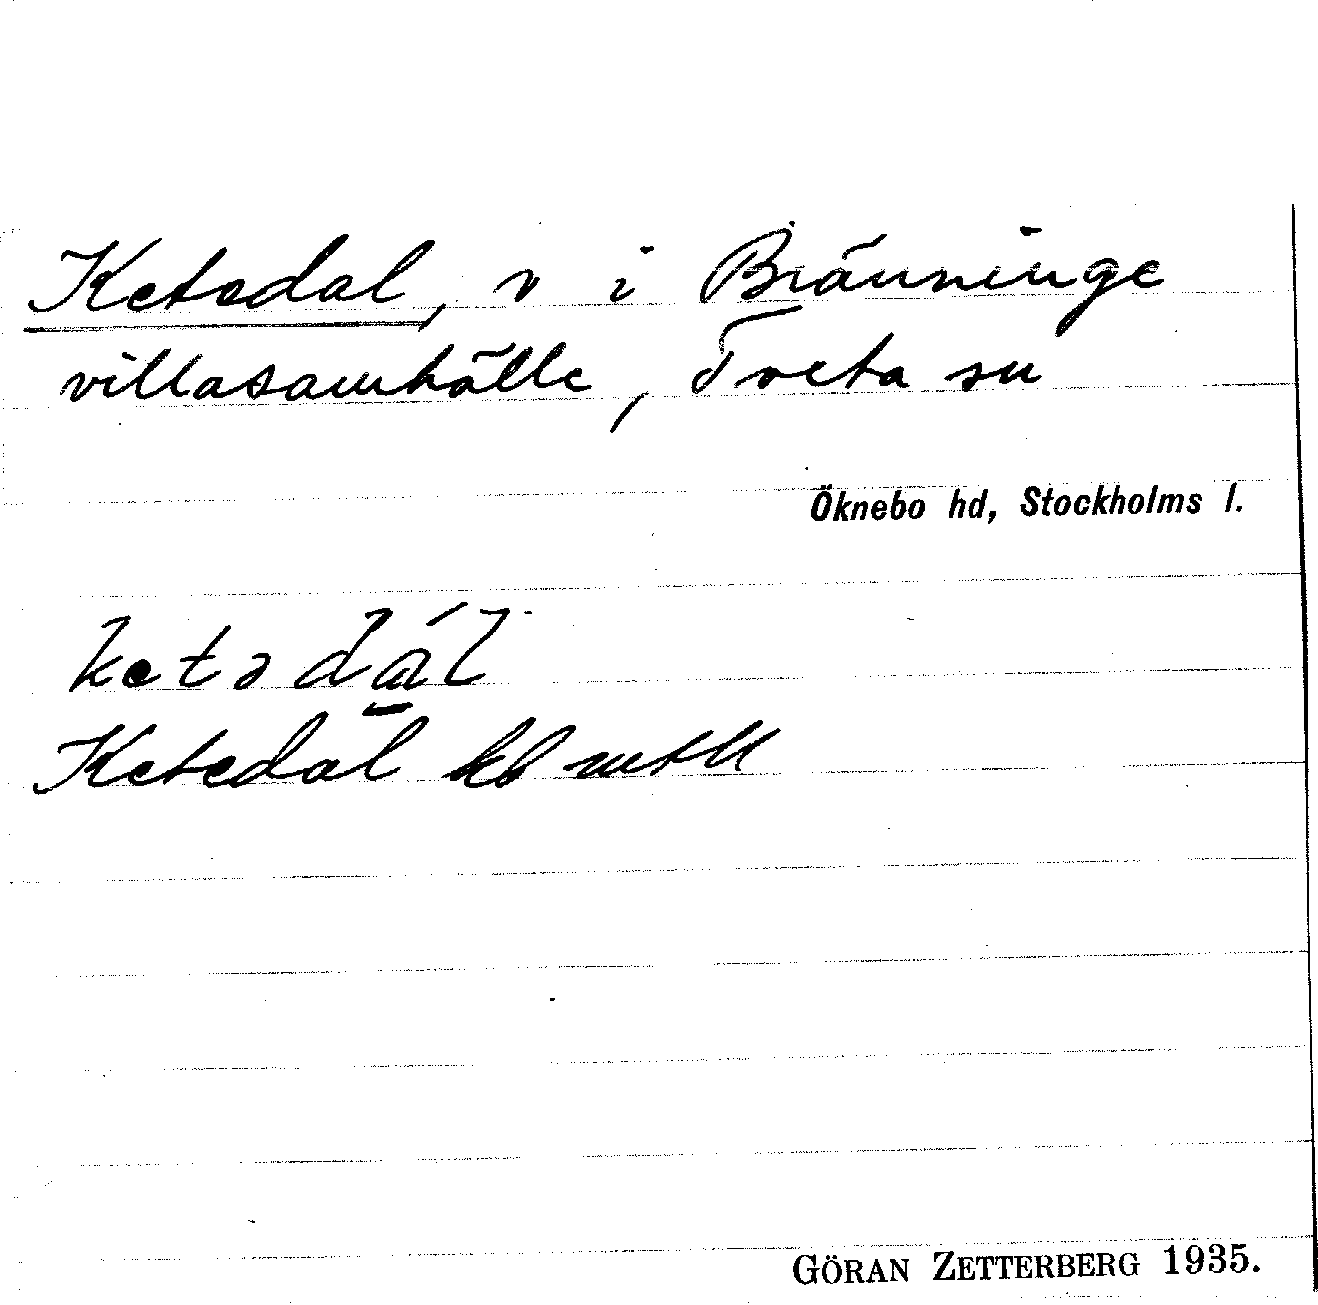 Ketedal, v i Bränninge
villasamhälle, Tveta sn
Öknebo hd, Stockholms l.
ketədál
Ketedal kb mtll
GÖRAN ZETTERBERG 1935.